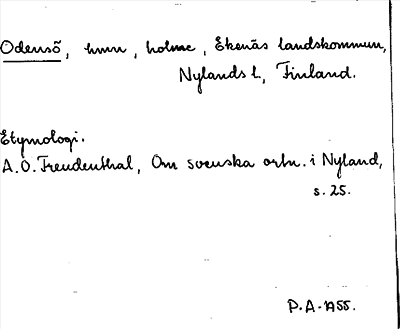 Odensö, hmn, holme, Ekenäs landskommun,
Nylands l., Finland.
Etymologi.
A.O. Freudenthal, Om svenska ortn. i Nyland,
s. 25.
P.A. 1955.